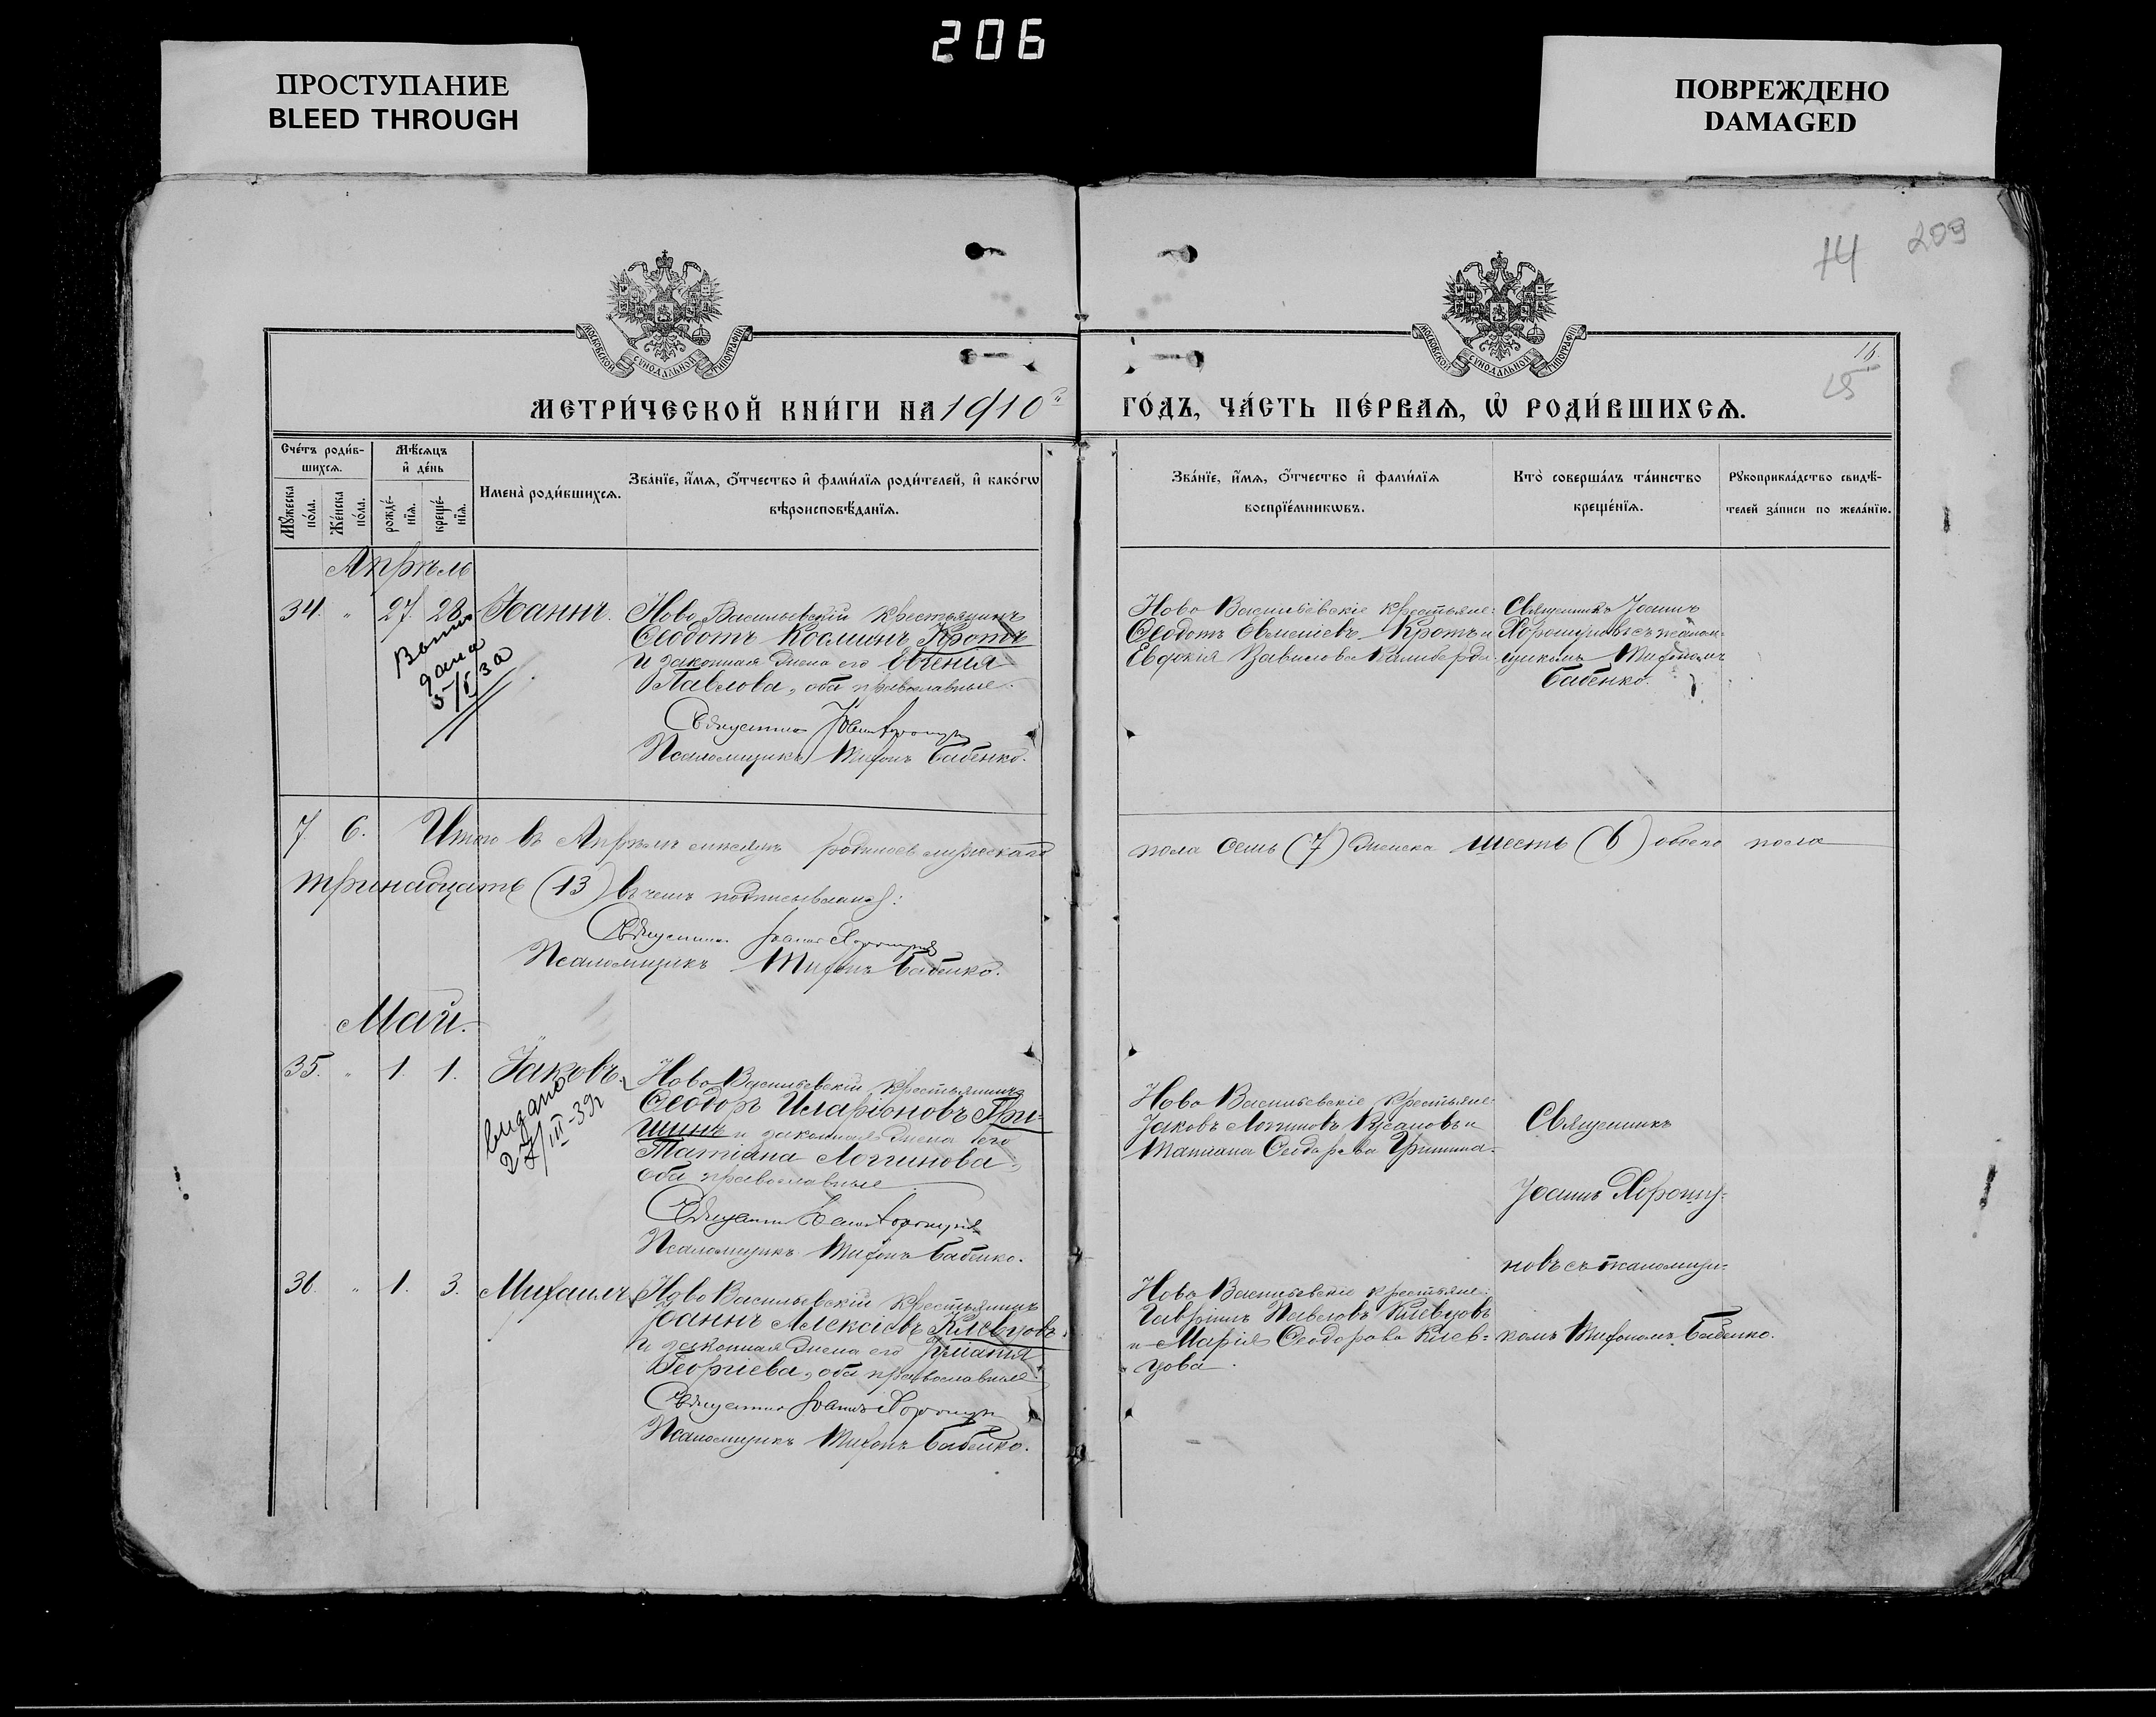 206
ПРОСТУПАНИЕ
BLEED THROUGH
ПОВРЕЖДЕНО
DAMAGED
14
209
МОСКОВСКОЙ СУНОДАЛЬНОЙ ТИПОГРАФІИ
МОСКОВСКОЙ СУНОДАЛЬНОЙ ТИПОГРАФІИ
15
МЕТРИ́ЧЕСКОЙ КНИ́ГИ НА 1910
ГО́ДЪ, ЧА́СТЬ ПЕ́РВАЯ, Ѡ РОДИ́ВШИХСѦ.
Сче́тъ роди́в-
шихсѧ.
Мꙋ́жеска по́ла.
Же́нска по́ла.
Мѣ́сяцъ
и де́нь
рожде́-нїя.
креще́-нїя.
Имена̀ роди́вшихсѧ.
Зва́нїе, и́мѧ, ѻ́тчество и фами́лїѧ роди́телей, и како́гѡ
вѣроисповѣ́данїѧ.
Зва́нїе, и́мѧ, ѻ́тчество и фами́лїѧ
воспрїе́мникѡвъ.
Кто̀ соверша́лъ та́инство
креще́нїѧ.
Рꙋкоприкла́дство свидѣ́-
телей за́писи по жела́нїю.
Апрѣль
34. " 27. 28. Іоаннъ.
Ново Васильевскій крестьянинъ
Ѳеодотъ Косминъ Кротъ
и законная жена его Евгенія
Павлова, оба православные.
Священникъ Іоаннъ
Псаломщикъ Тихонъ Бабенко.
дана
5/I 30
Ново Васильевскіе крестьяне:
Ѳеодотъ Евменіевъ Кротъ и
Евдокія Вавилова
Священникъ Іоаннъ
Хорошуновъ съ псалом-
щикомъ Тихономъ
Бабенко.
7. 6. Итого въ Апрѣлѣ мѣсяцѣ родилось мужескаго
пола семь (7) женска шесть (6) обоего пола
тринадцать (13) въ чемъ подписываемся:
Священникъ Іоаннъ Хорошунъ
Псаломщикъ Тихонъ Бабенко.
Май.
35. " 1. 1. Іаковъ.
Ново Васильевскій крестьянинъ
Ѳеодоръ Иларіоновъ Гри-
шинъ и законная жена его
Татіана Логгинова,
оба православные
Священникъ Іоаннъ Хорошунъ
Псаломщикъ Тихонъ Бабенко.
выдано
27/III-39г
Ново Васильевскіе крестьяне
Іаковъ Логгиновъ Русановъ и
Татіана Ѳеодорова Гришина.
Священникъ
Іоаннъ Хорошу-
новъ съ псаломщи-
комъ Тихономъ Бабенко.
36. " 1. 3. Михаилъ
Ново Васильевскій крестьянинъ
Іоаннъ Алексіевъ Клевцовъ
и законная жена его Іуліанія
Георгіева, оба православные
Священникъ Іоаннъ Хорошунъ
Псаломщикъ Тихонъ Бабенко.
Ново Васильевскіе крестьяне:
Гавріилъ Павловъ Клевцовъ
и Марія Ѳеодорова Клев-
цова.